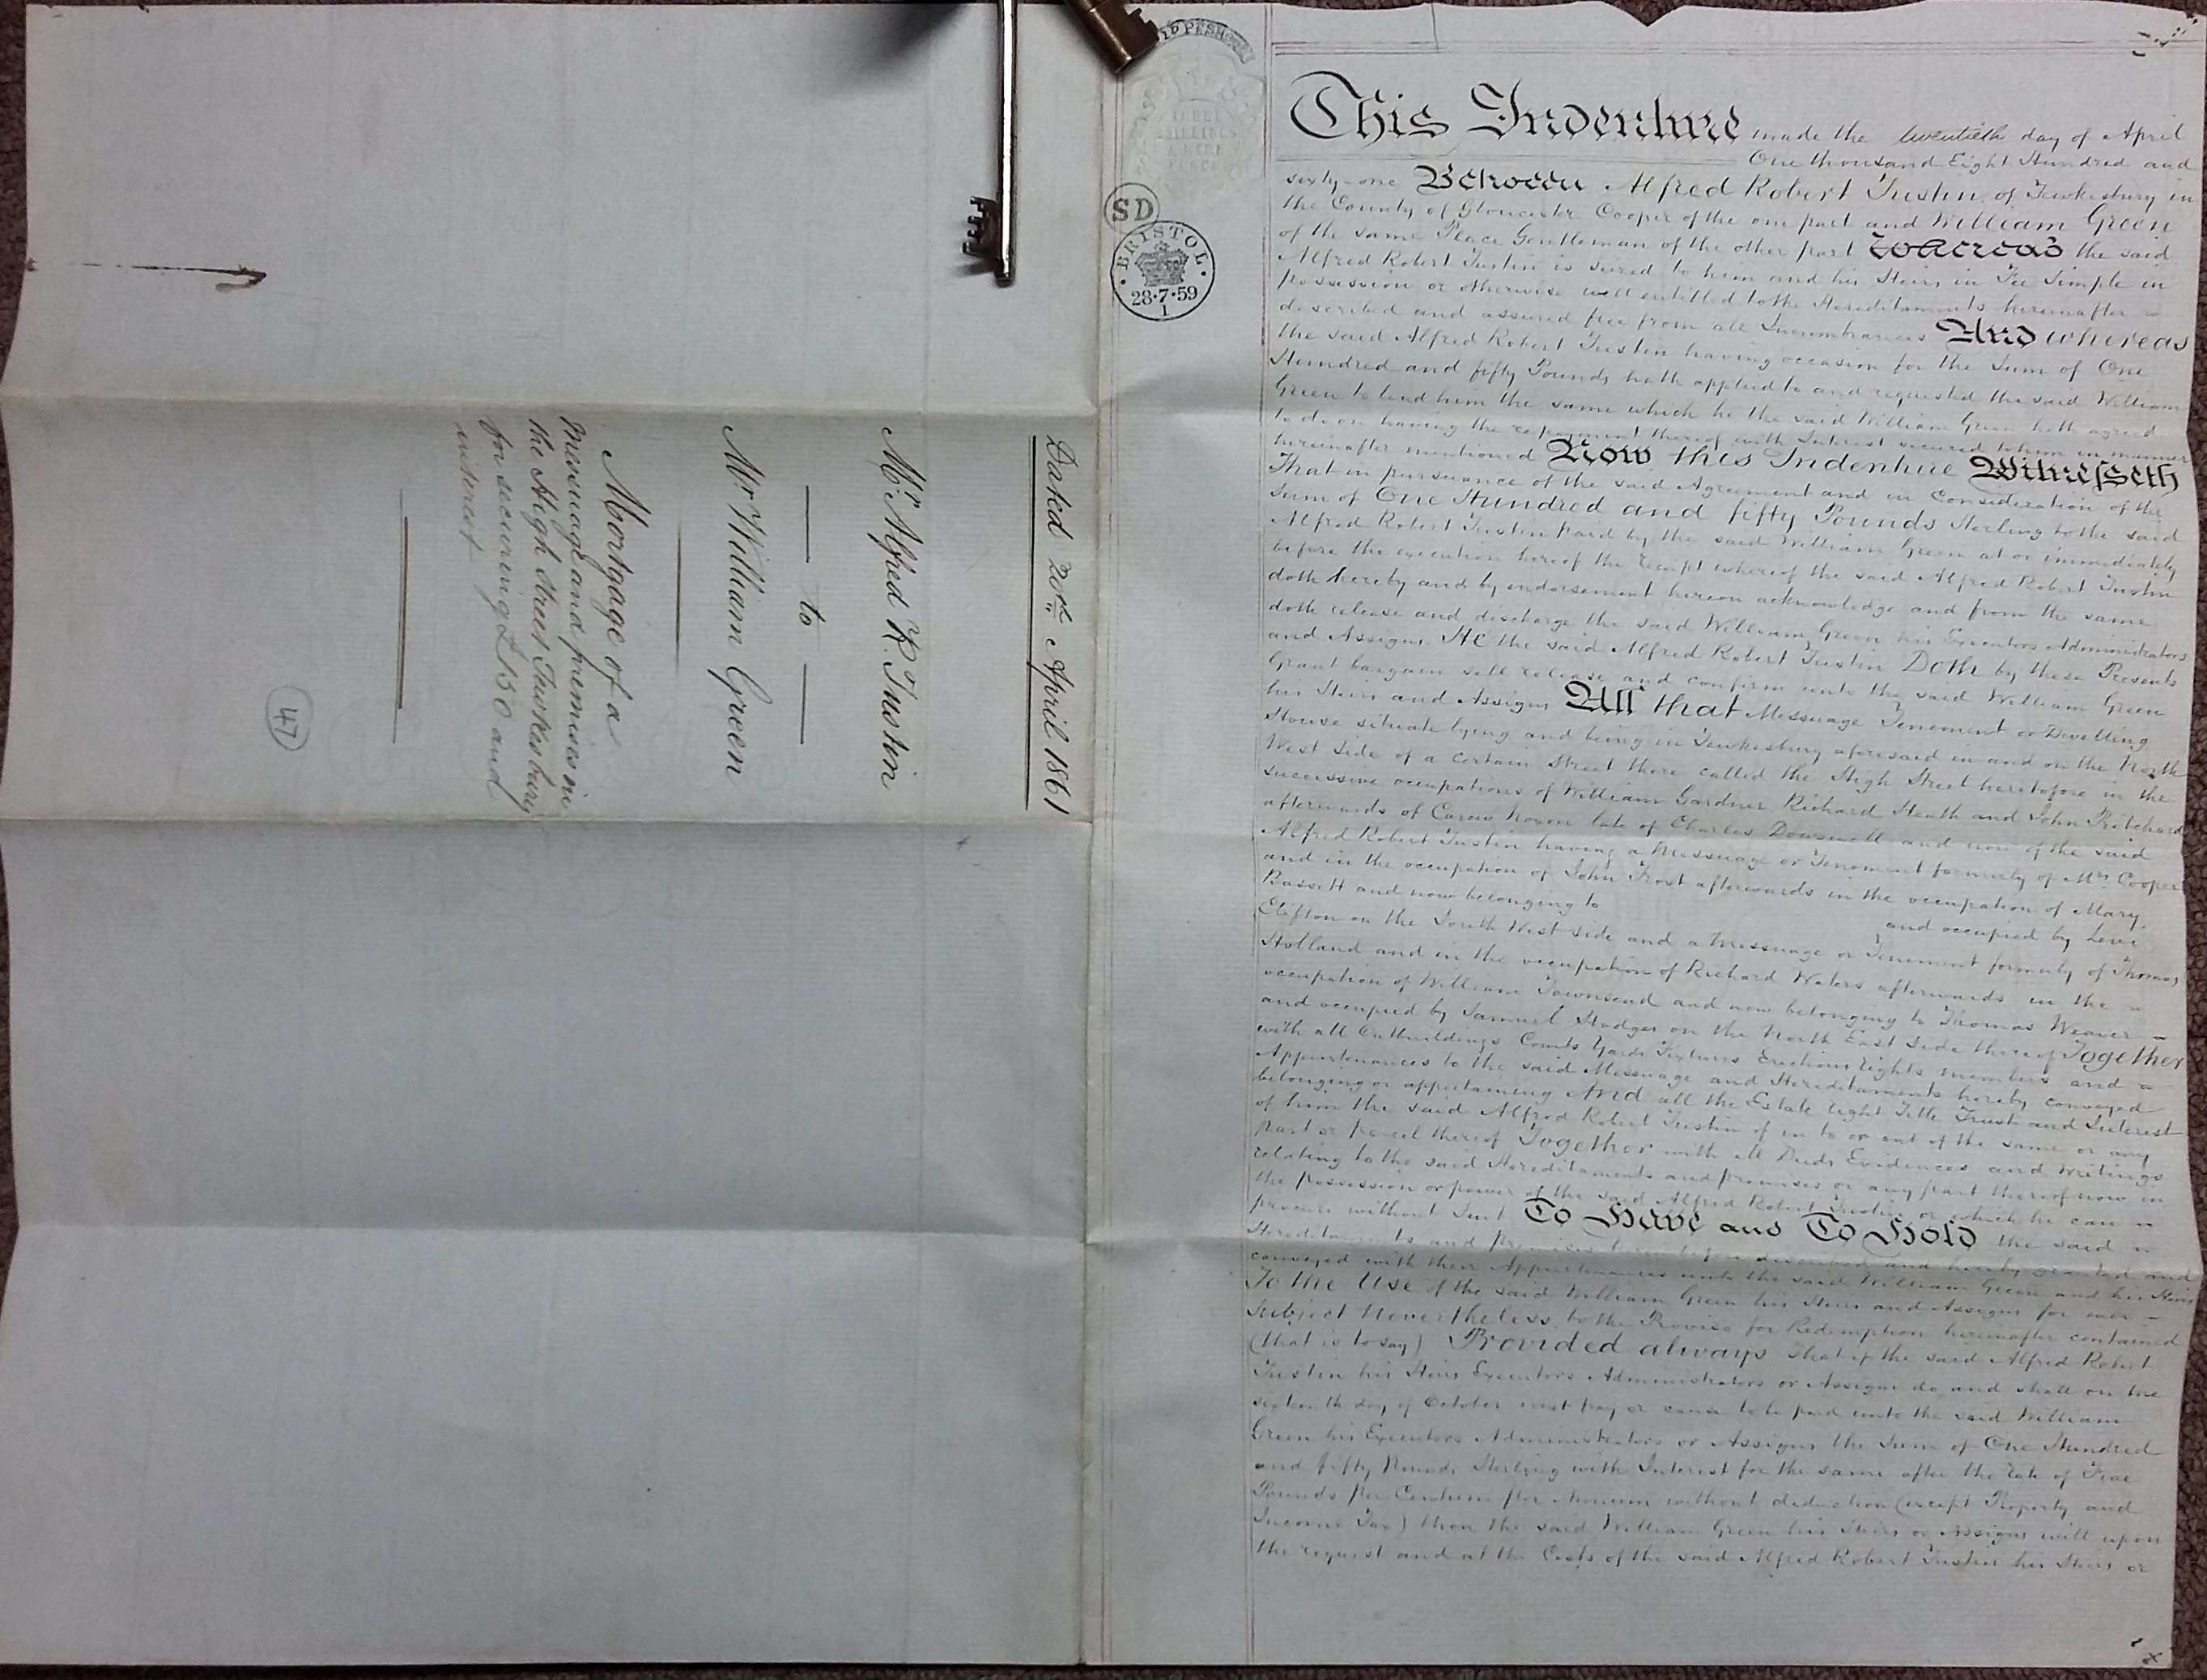 Dated 20th April 1861
Mr Alfred R. Tustin
to
Mr William Green
Mortgage of a
Messuage and premises in
the High Street Tewkesbury
for securing £150 and
interest
47
SD
BRISTOL
28·7·59
1
This Indenture made the twentieth day of April
One thousand Eight Hundred and
sixty-one Between Alfred Robert Tustin of Tewkesbury in
the County of Gloucester Cooper of the one part and William Green
of the same Place Gentleman of the other part Whereas the said
Alfred Robert Tustin is seized to him and his Heirs in Fee Simple in
possession or otherwise well entitled to the Hereditaments hereinafter
described and assured free from all Incumbrances And whereas
the said Alfred Robert Tustin having occasion for the Sum of One
Hundred and fifty Pounds hath applied to and requested the said William
Green to lend him the same which he the said William Green hath agreed
to do on having the repayment thereof with Interest secured to him in manner
hereinafter mentioned Now this Indenture Witnesseth
That in pursuance of the said Agreement and in Consideration of the
Sum of One Hundred and fifty Pounds Sterling to the said
Alfred Robert Tustin paid by the said William Green at or immediately
before the execution hereof the receipt whereof the said Alfred Robert Tustin
doth hereby and by endorsement hereon acknowledge and from the same
doth release and discharge the said William Green his Executors Administrators
and Assigns He the said Alfred Robert Tustin Doth by these Presents
Grant bargain sell release and confirm unto the said William Green
his Heirs and Assigns All that Messuage Tenement or Dwelling
House situate lying and being in Tewkesbury aforesaid in and on the North
West Side of a certain Street there called the High Street heretofore in the
successive occupations of William Gardner Richard Heath and John Pritchard
afterwards of late of Charles Dowswell and now of the said
Alfred Robert Tustin having a Messuage or Tenement formerly of Mrs Cooper
and in the occupation of John Frost afterwards in the occupation of Mary
Bassett and now belonging to and occupied by Levi
Clifton on the South West side and a Messuage or Tenement formerly of Thomas
Holland and in the occupation of Richard Waters afterwards in the
occupation of William Townsend and now belonging to Thomas Weaver
and occupied by Samuel Hodges on the North East Side thereof Together
with all Outbuildings Courts Yards Fixtures Erections rights members and
Appurtenances to the said Messuage and Hereditaments hereby conveyed
belonging or appertaining And all the Estate right Title Trust and Interest
of him the said Alfred Robert Tustin of in to or out of the same or any
part or parcel thereof Together with all Deeds Evidences and Writings
relating to the said Hereditaments and premises or any part thereof now in
the possession or power of the said Alfred Robert Tustin or which he can
procure without Suit To Have and To Hold the said
Hereditaments and Premises hereinbefore described and hereby granted and
conveyed with their Appurtenances unto the said William Green and his Heirs
To the Use of the said William Green his Heirs and Assigns for ever
Subject Nevertheless to the Proviso for Redemption hereinafter contained
(that is to say) Provided always that if the said Alfred Robert
Tustin his Heirs Executors Administrators or Assigns do and shall on the
sixteenth day of October next pay or cause to be paid unto the said William
Green his Executors Administrators or Assigns the Sum of One Hundred
and fifty Pounds Sterling with Interest for the same after the rate of Five
Pounds per Centum per Annum without deduction (except Property and
Income Tax) then the said William Green his Heirs or Assigns will upon
the request and at the Costs of the said Alfred Robert Tustin his Heirs or